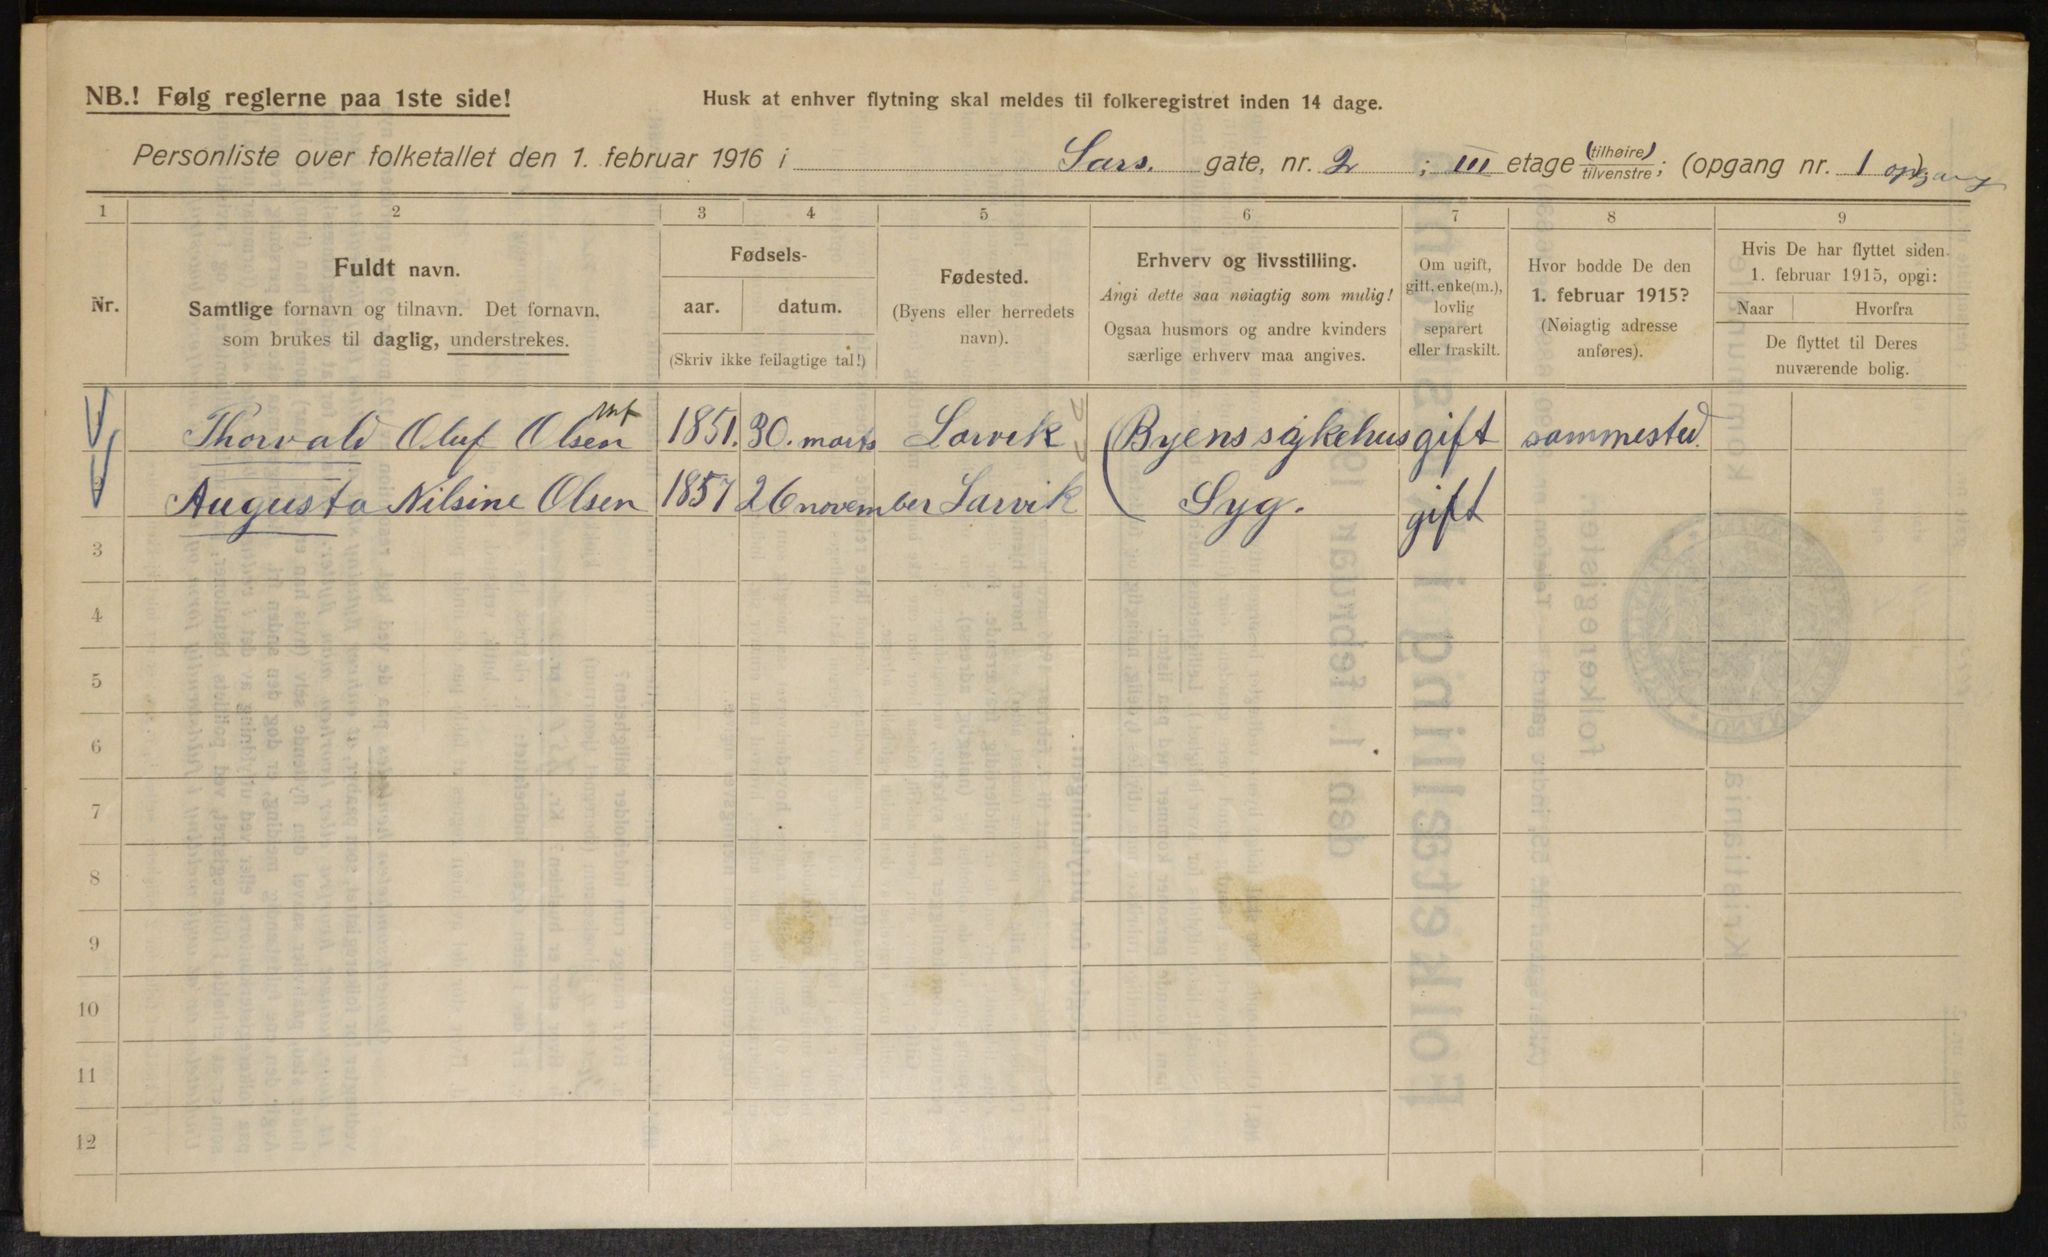 NB.! Følg reglerne paa 1ste side!
Husk at enhver flytning skal meldes til folkeregistret inden 14 dage.
Personliste over folketallet den 1. februar 1916 i Sars. gate, nr. 2 ; III etage (tilhøire) tilvenstre; (opgang nr. 1 opgang
1 2 3 4 5 6 7 8 9
Nr.
Fuldt navn.
Samtlige fornavn og tilnavn. Det fornavn,
som brukes til daglig, understrekes.
Fødsels-
aar. datum.
(Skriv ikke feilagtige tal!)
Fødested.
(Byens eller herredets
navn).
Erhverv og livsstilling.
Angi dette saa nøiagtig som mulig!
Ogsaa husmors og andre kvinders
særlige erhverv maa angives.
Om ugift,
gift, enke(m.),
lovlig
separert
eller fraskilt.
Hvor bodde De den
1. februar 1915?
(Nøiagtig adresse
anføres).
Hvis De har flyttet siden
1. februar 1915, opgi:
Naar Hvorfra
De flyttet til Deres
nuværende bolig.
Thorvald Oluf Olsen 1851. 30. marts Larvik Byens sykehus gift sammested.
2 Augusta Nilsine Olsen 1857 26 november Larvik Syg. gift
3
4
5
6
7
8
9
10
11
12